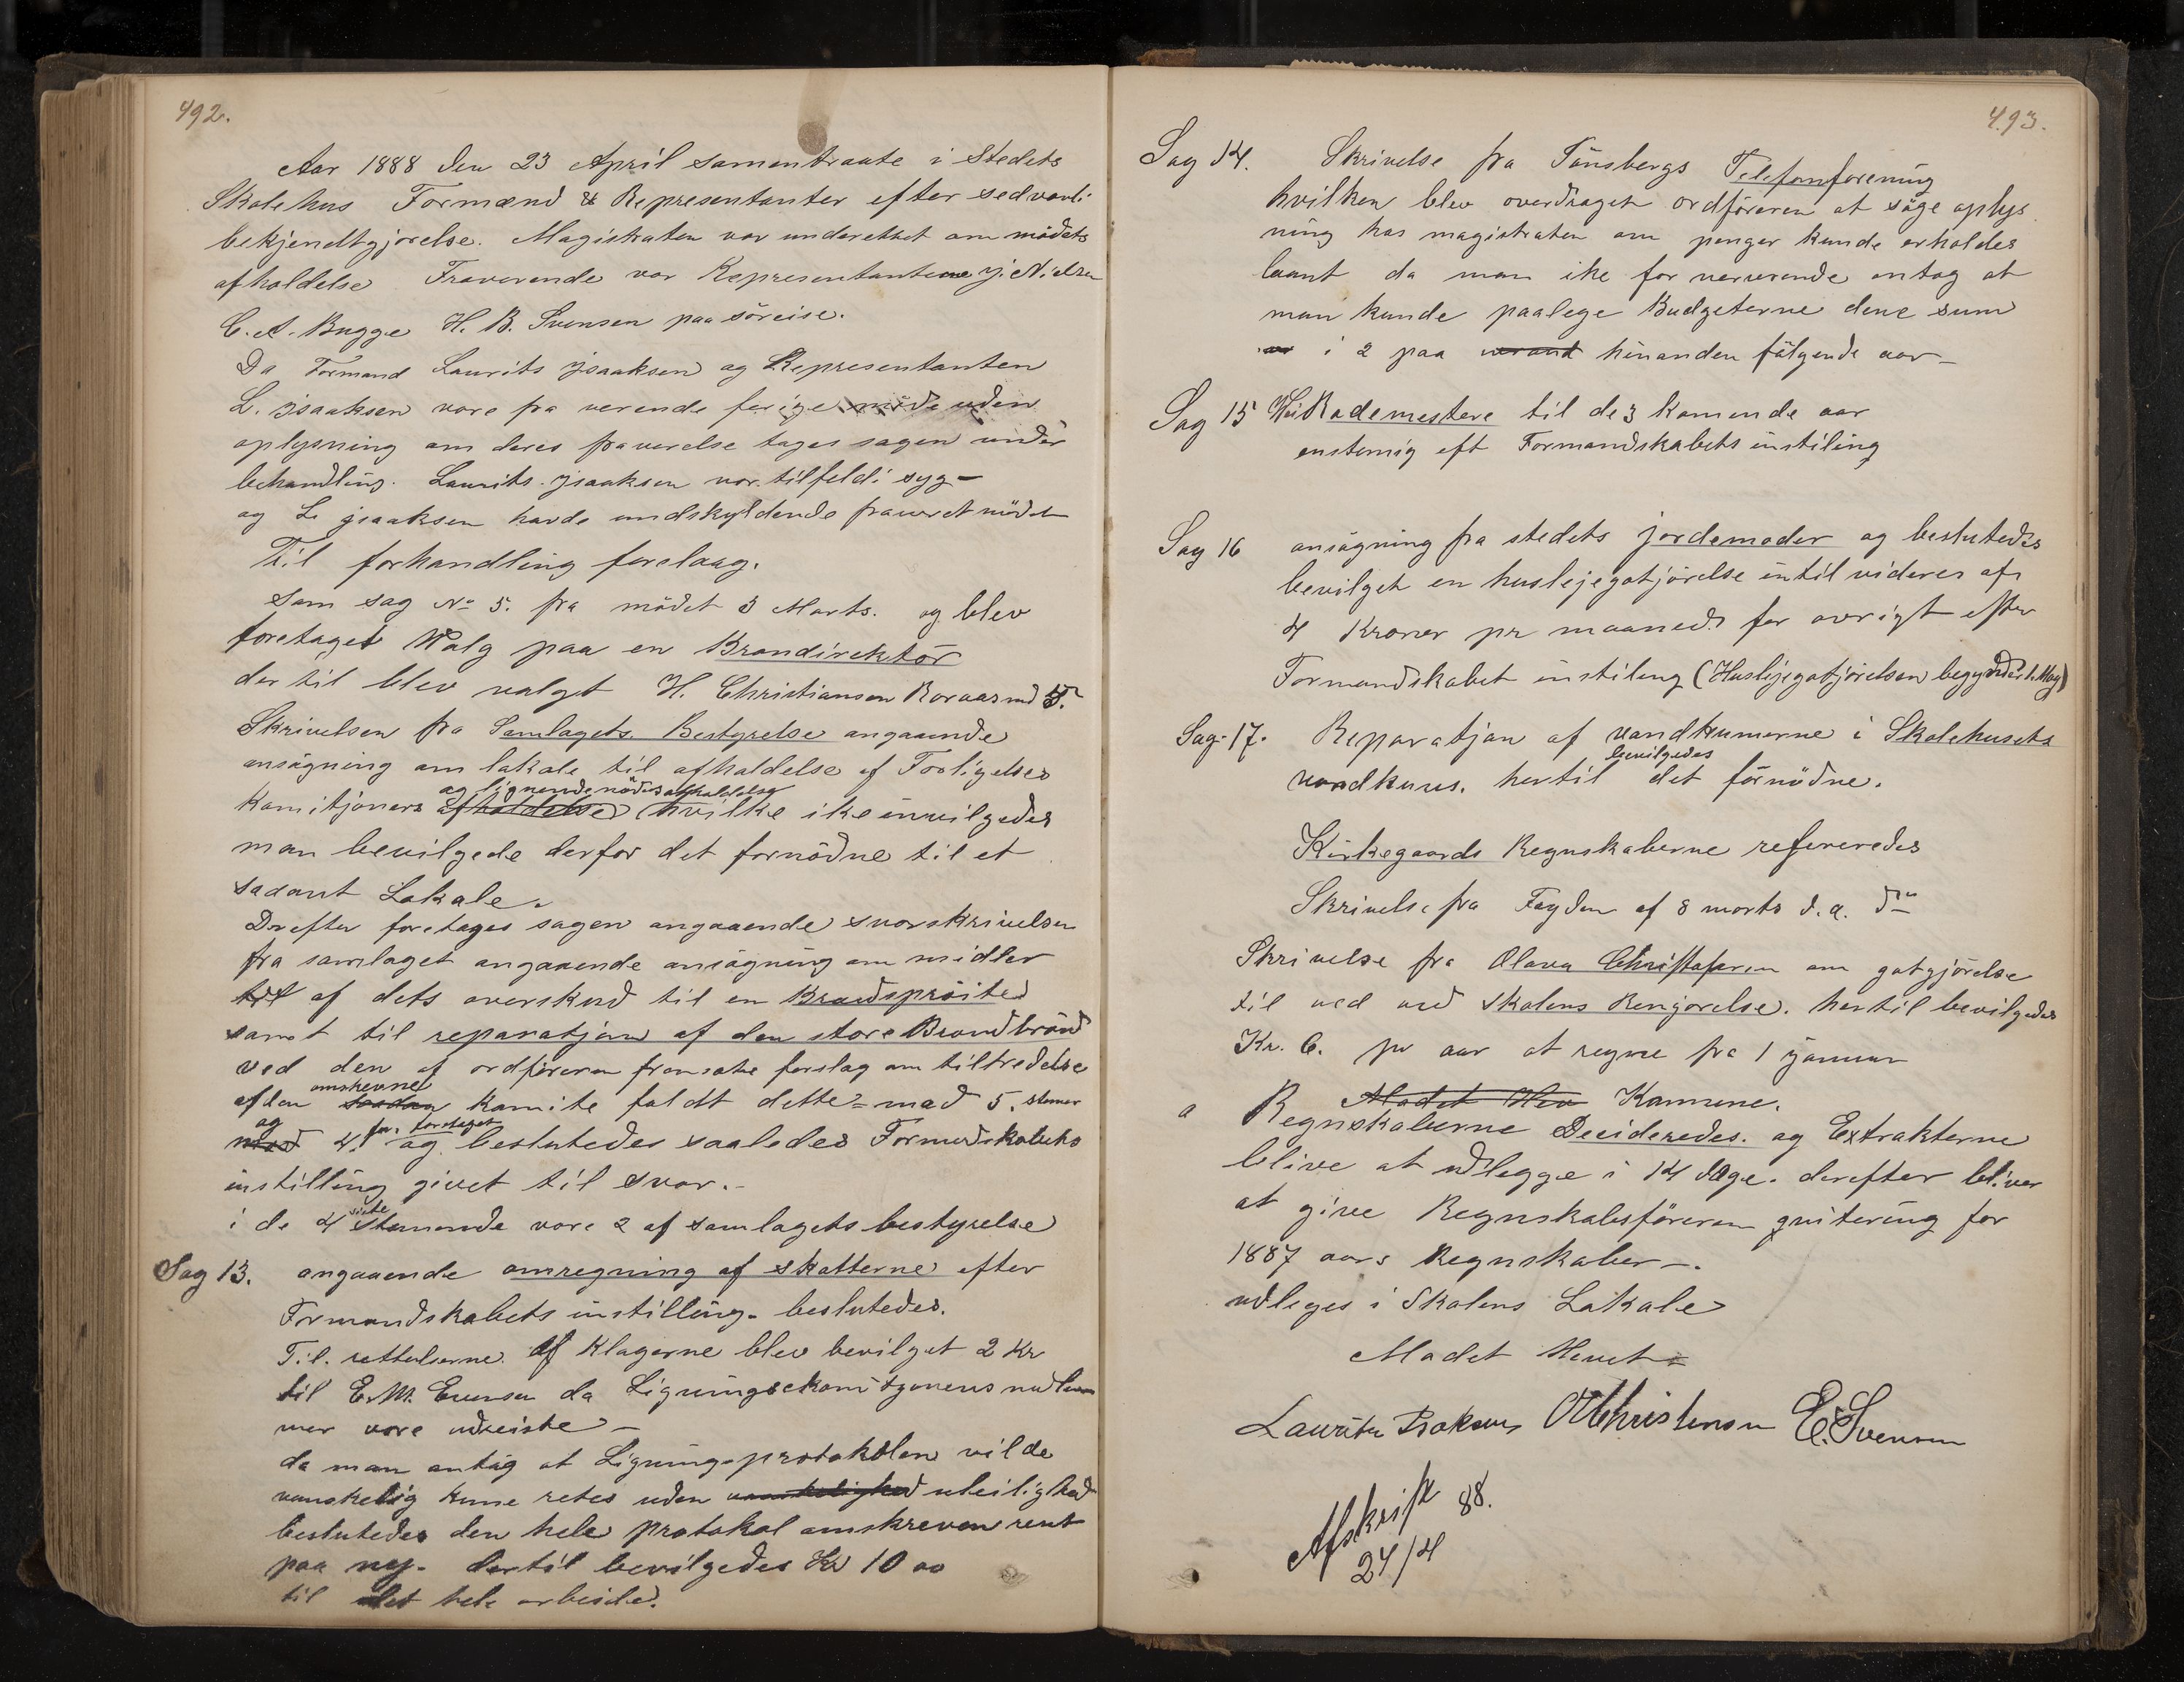 492.
Aar 1888 den 23 April samentraate i Stedets
Skolehus Formænd & Representanter efter sedvanli
bekjendtgjørelse. Magistraten var underettet om mödets
afholdelse Fraverende var Representanterne J. Nielsen
C. A. Bugge H. B. Svensen paa söreise.
Da Formand Laurits Jsaaksen og Representanten
L. Jsaaksen vare fra verende forige möde uden
oplysning om deres fraverelse tages sagen under
behandling. Laurits Jsaaksen var tilfeldi syg –
og L. Jsaaksen havde undskyldende fraveret mödet
Til forhandling forelaag.
Som sag No 5. fra mödet 3 Marts. og blev
foretaget Valg paa en Brandirektör
der til blev valgt H. Christiansen med 5.
Skrivelsen fra Samlagets Bestyrelse angaaende
ansögning om lokale til afholdelse af Forligelses
og lignende mödes afholdelse
Komitjoners afholdelse hvilke ike invilgedes
man bevilgede derfor det fornödne til et
sadant Lokale.
Derefter foretages sagen angaaende svarskrivelsen
fra samlaget angaaende ansögning om midler
til af dets overskud til en Brandspröite
samt til reparatjon af den store Brandbrönd
ved den af ordföreren fremsate forslag om tiltredelse
omskrevne
af den saadan komite faldt dette = mad 5. stemer
og for. forslaget
mod 4. og beslutedes saaledes Formandskabets
instilling givet til svar. –
siste
i de 4 stemende vare 2 af samlagets bestyrelse
Sag 13. angaaende omregning af skatterne efter
Formandskabets instilling. beslutedes.
Til. rettelserne af Klagerne blev bevilget 2 Kr
til E. M. Evensen da Ligningskomitjonens medlem
mer vare udreiste –
da man antag at Ligningsprotokolen vilde
vanskelig kune retes uden vanskelighed uleilighed
beslutedes den hele protokol omskreven rent
paa ny. dertil bevilgedes Kr 10 00
til det hele arbeide.
493.
Sag 14. Skrivelse fra Tönsbergs Telefonforening
hvilken blev overdraget ordföreren at söge oplys
ning hos magistraten om penger kunde erholdes
laant da man ike for nerverende antog at
man kunde paalege Budgeterne dene sum
i 2 paa verand hinanden fölgende aar –
Sag 15 Rodemestere til de 3 komende aar
enstemig eft Formandskabets instiling
Sag 16 ansögning fra stedets jordemoder og beslutedes
bevilget en huslejegotjörelse intil videre af
4 Kroner pr maaned. for ovrigt efter
Formandskabet instiling (Huslejegotjörelsen begynder 1. May)
Sag 17. Reparatjon af vandkumerne i Skolehusets
bevilgedes
vandkuus. hertil det fornödne.
Kirkegaards Regnskaberne refereredes
Skrivelse fra Fogden af 8 marts d. a. do
Skrivelse fra Olava Christofersen om gotgjörelse
til ved ved skolens Rengjorelse. hertil bevilgedes
Kr. 6. pr aar at regne fra 1 januar
Mödet Hev Komune.
a Regnskaberne Decideredes. og Extrakterne
blive at udlegge i 14 dage. derefter bliver
at give Regnskabsföreren qvitering for
1887 aars Regnskaber –.
udleges i Skolens Lokale
Mødet Hevet
Laurits Isaksen O. Christensen E. Svensen
Afskrift
24/4 88.